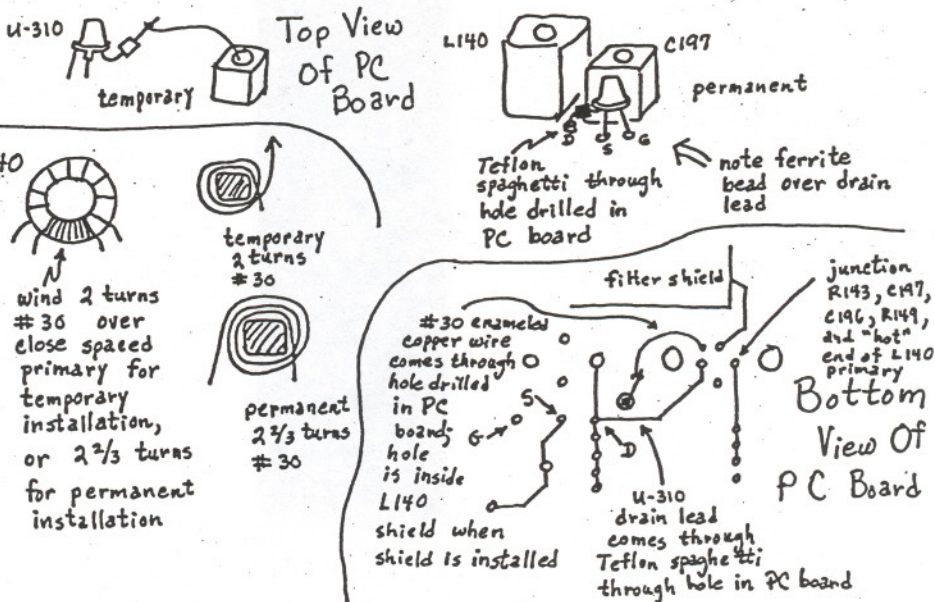 U-310
temporary
Top View
Of PC
Board
L140
C197
permanent
D
S
G
Teflon
spaghetti through
hole drilled in
PC board
note ferrite
bead over drain
lead
40
wind 2 turns
#30 over
close spaced
primary for
temporary
installation,
or 2 2/3 turns
for permanent
installation
temporary
2 turns
#30
permanent
2 2/3 turns
#30
filter shield
junction
R143, C197,
C196, R149,
and "hot"
end of L140
primary
#30 enameled
copper wire
comes through
hole drilled
in PC
board;
hole
is inside
L140
shield when
shield is installed
S
G
D
U-310
drain lead
comes through
Teflon spaghetti
through hole in PC board
Bottom
View Of
PC Board